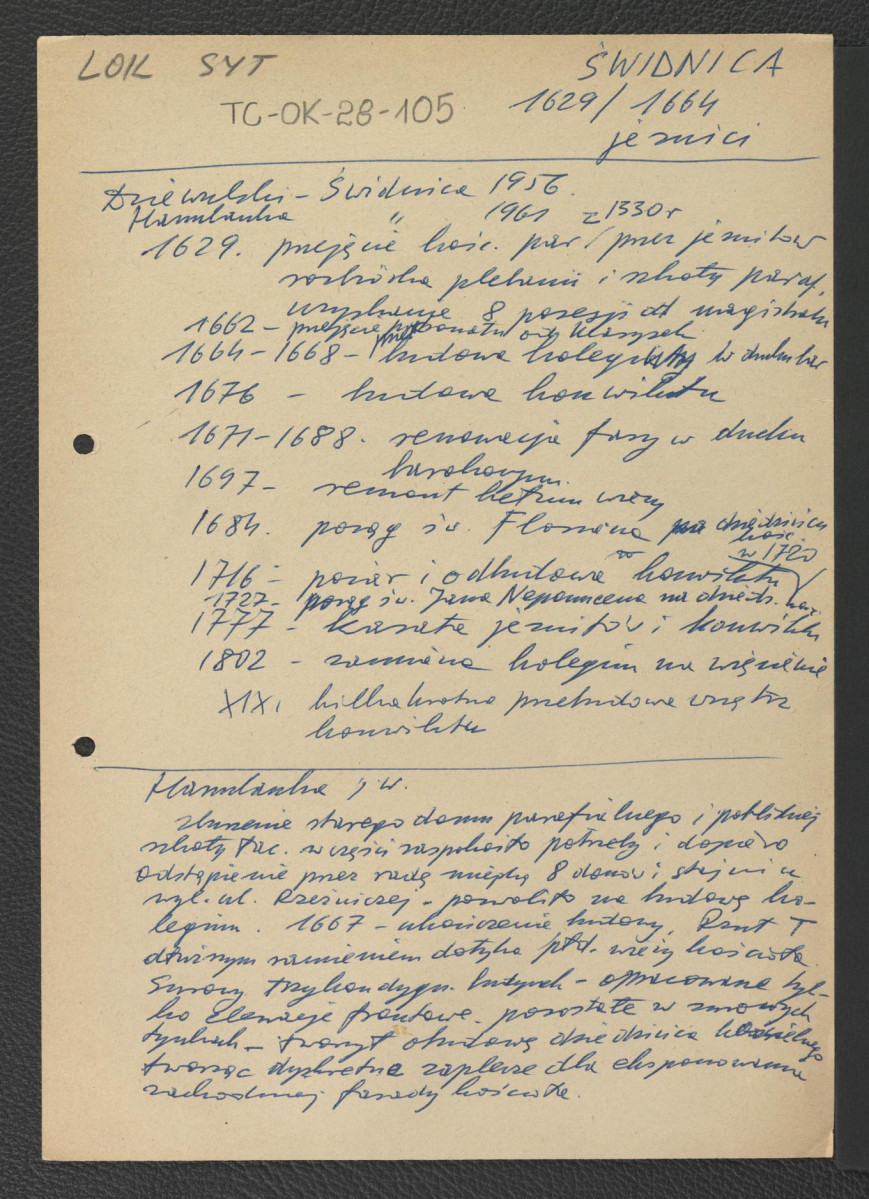 LOK SYT ŚWIDNICA
TC-OK-2B-105 1629/1664
jezuici
Dziewulski - Świdnica 1956.
Hanulanka " 1961 z 1330 r
1629. przejęcie kośc. par. przez jezuitów
rozbiórka plebanii i szkoły paraf.
uzyskanie 8 posesji od magistratu
1662 - przejęcie patronatu od Klarysek
1664-1668 - budowa kolegium w duchu bar
1676 - budowa konwiktu
1671-1688. renowacja fary w duchu
barokowym.
1697 - remont hełmu wieży
1684. posąg św. Floriana na dziedzińcu
kośc.
w 1720
1716 - pożar i odbudowa konwiktu
1727 - posąg św. Jana Nepomucena na dziedz. kośc.
1777 - kasata jezuitów i konwiktu
1802 - zamiana kolegium na więzienie
XIX. kilkakrotna przebudowa wnętrz
konwiktu
Hanulanka j w.
zburzenie starego domu parafialnego i pobliskiej
szkoły łac. w części zaspokoiło potrzeby i dopiero
odstąpienie przez radę miejską 8 domów i stajni u
wyl. ul. Rzeźniczej - pozwoliło na budowę ko-
legium. 1667 - ukończenie budowy. Rzut T
dłuższym ramieniem dotyka płd. wieży kościoła
Surowy trzykondygn. budynek - opracowane tyl-
ko elewacje frontowe. pozostałe w surowych
tynkach - tworzył obudowę dziedzińca kościelnego
tworząc dyskretne zaplecze dla eksponowania
zachodniej fasady kościoła.